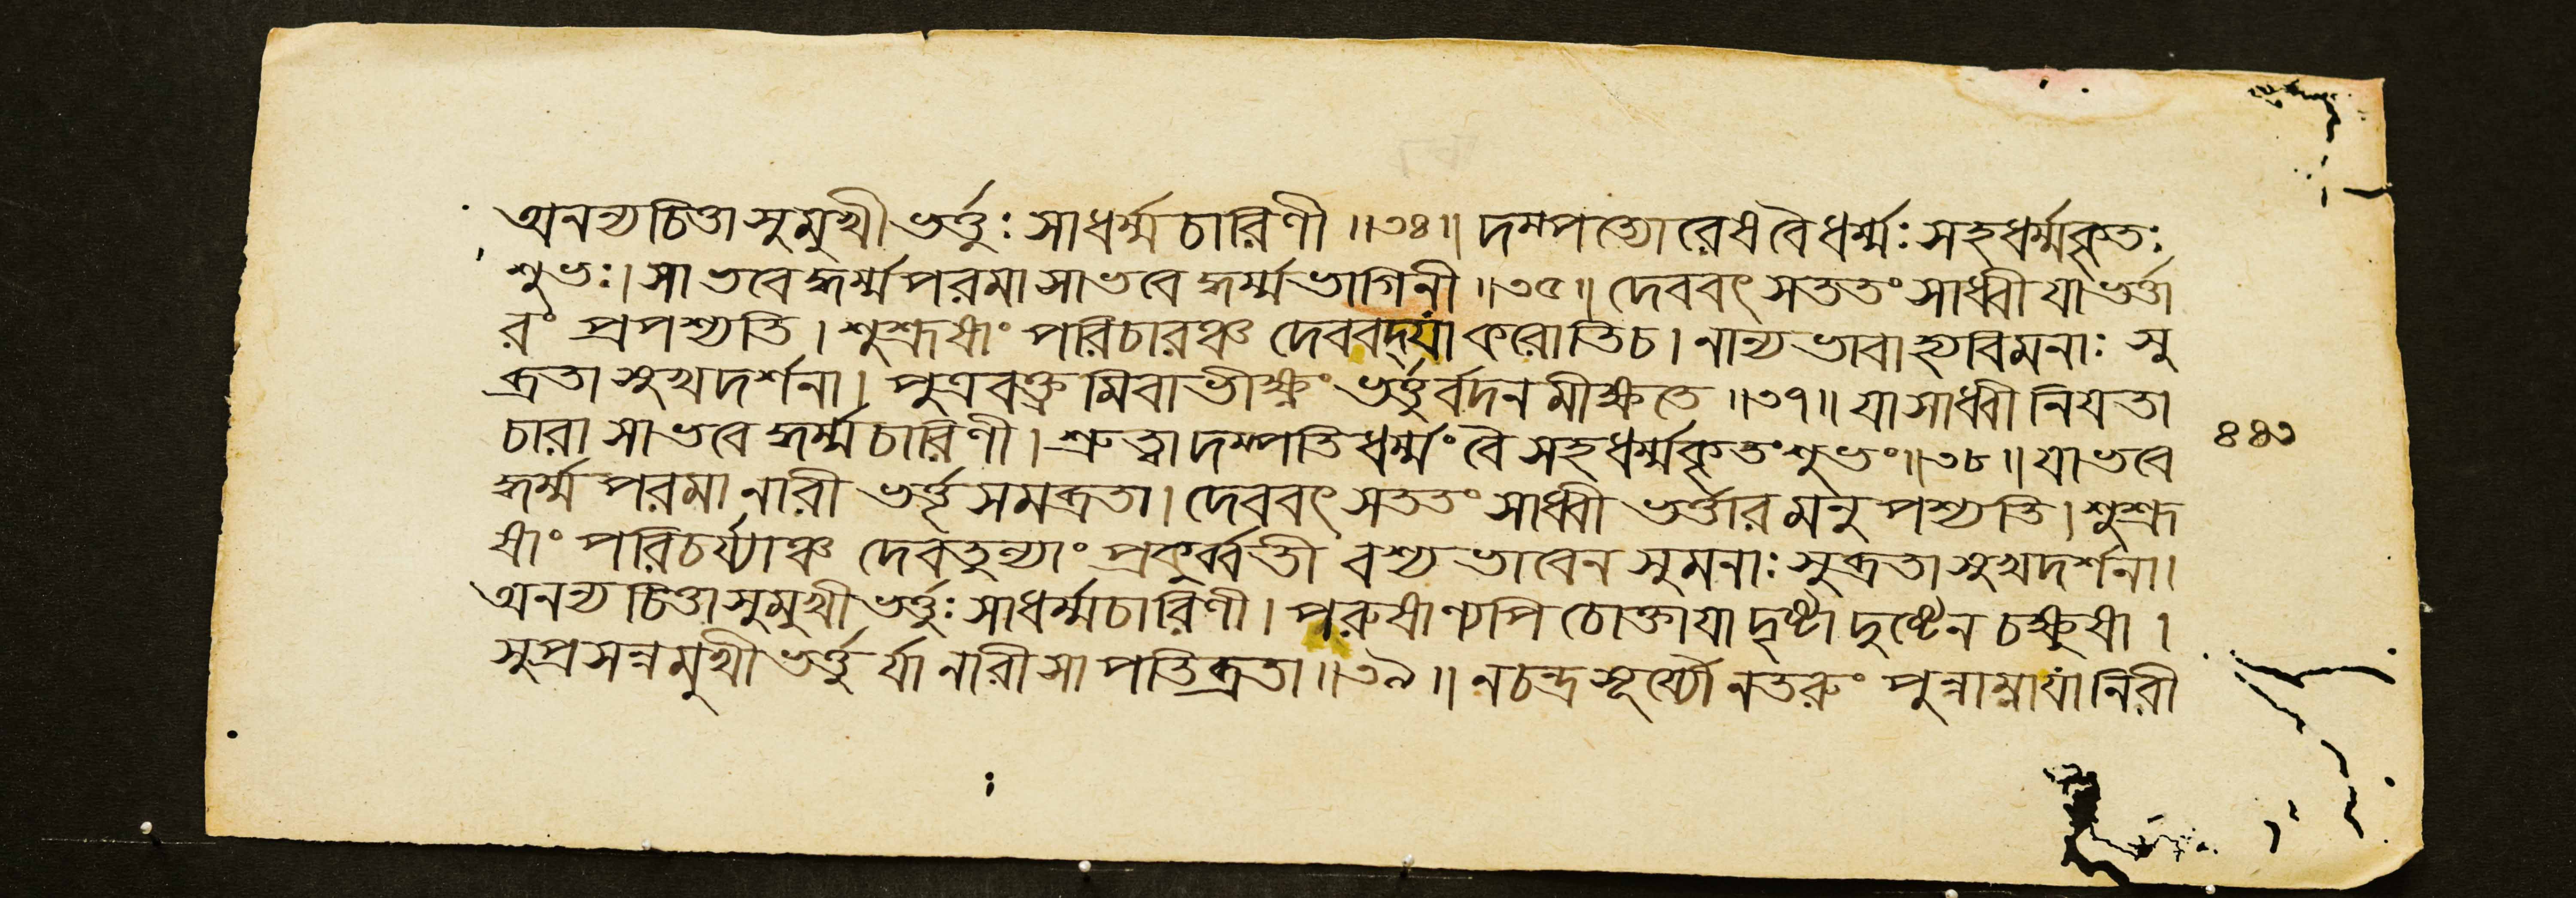 অনন্যচিত্তা সুমুখী ভর্ত্তুঃ সা ধর্ম্মচারিণী ॥৩৪॥ দম্পত্যোরেষ বৈ ধর্ম্মঃ সহধর্ম্মকৃতঃ
শুভঃ। সা ভবেদ্ধর্ম্মপরমা সা ভবেদ্ধর্ম্মভাগিনী ॥৩৫॥ দেববৎ সততং সাধ্বী যা ভর্ত্তা
রং প্রপশ্যতি। শুশ্রূষাং পরিচারঞ্চ দেববদ্‌যা করোতি চ। নান্যভাবাহ্যবিমনাঃ সু
ব্রতা সুখদর্শনা। পুত্রবক্ত্রমিবাভীক্ষ্ণং ভর্ত্তুর্বদনমীক্ষতে ॥৩৭॥ যা সাধ্বী নিযতা
চারা সা ভবেদ্ধর্ম্মচারিণী। শ্রুত্বা দম্পতিধর্ম্মং বৈ সহধর্ম্মকৃতং শুভং॥৩৮॥ যা ভবে
দ্ধর্ম্মপরমা নারী ভর্ত্তৃসমব্রতা। দেববৎ সততং সাধ্বী ভর্ত্তারমনুপশ্যতি। শুশ্রূ
ষাং পরিচর্য্যাঞ্চ দেবতুল্যাং প্রকুর্ব্বতী বশ্যভাবেন সুমনাঃ সুব্রতা সুখদর্শনা।
অনন্যচিত্তা সুমুখী ভর্ত্তুঃ সা ধর্ম্মচারিণী। পরুষাণ্যপি চোক্তা যা দৃষ্টা দুষ্টেন চক্ষুষা।
সুপ্রসন্নমুখী ভর্ত্তুর্যা নারী সা পতিব্রতা॥৩৯॥ ন চন্দ্রসূর্য্যৌ ন তরুং পুন্নাম্না যা নিরী
৪৪১